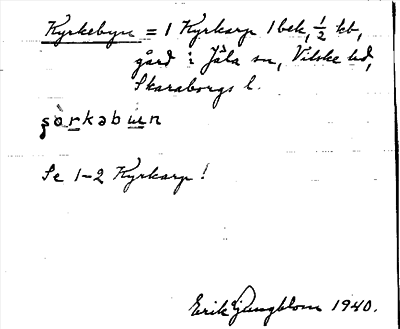 Kyrkebyn = 1 Kyrkarp 1 bek, ½ kb,
gård i Jäla sn, Vilske hd,
Skaraborgs l.
ʂòrkəbɯn
Se 1-2 Kyrkarp!
Erik Ljungblom 1940.